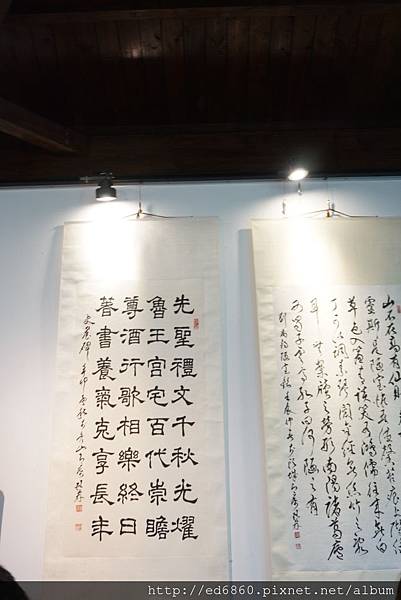 先聖禮文千秋光燿
魯王宮宅百代崇瞻
尊酒行歌相樂終日
著書養氣克享長年
史晨碑 辛卯
山不在高有仙則
靈斯是陋室惟吾德馨苔痕上階綠
草色入簾青談笑有鴻儒往來無白
丁可以調素琴閱金經無絲竹之亂
耳無案牘之勞形南陽諸葛廬
西蜀子雲亭孔子云何陋之有
劉禹錫陋室銘 壬辰
http://ed6860.pixnet.net/album